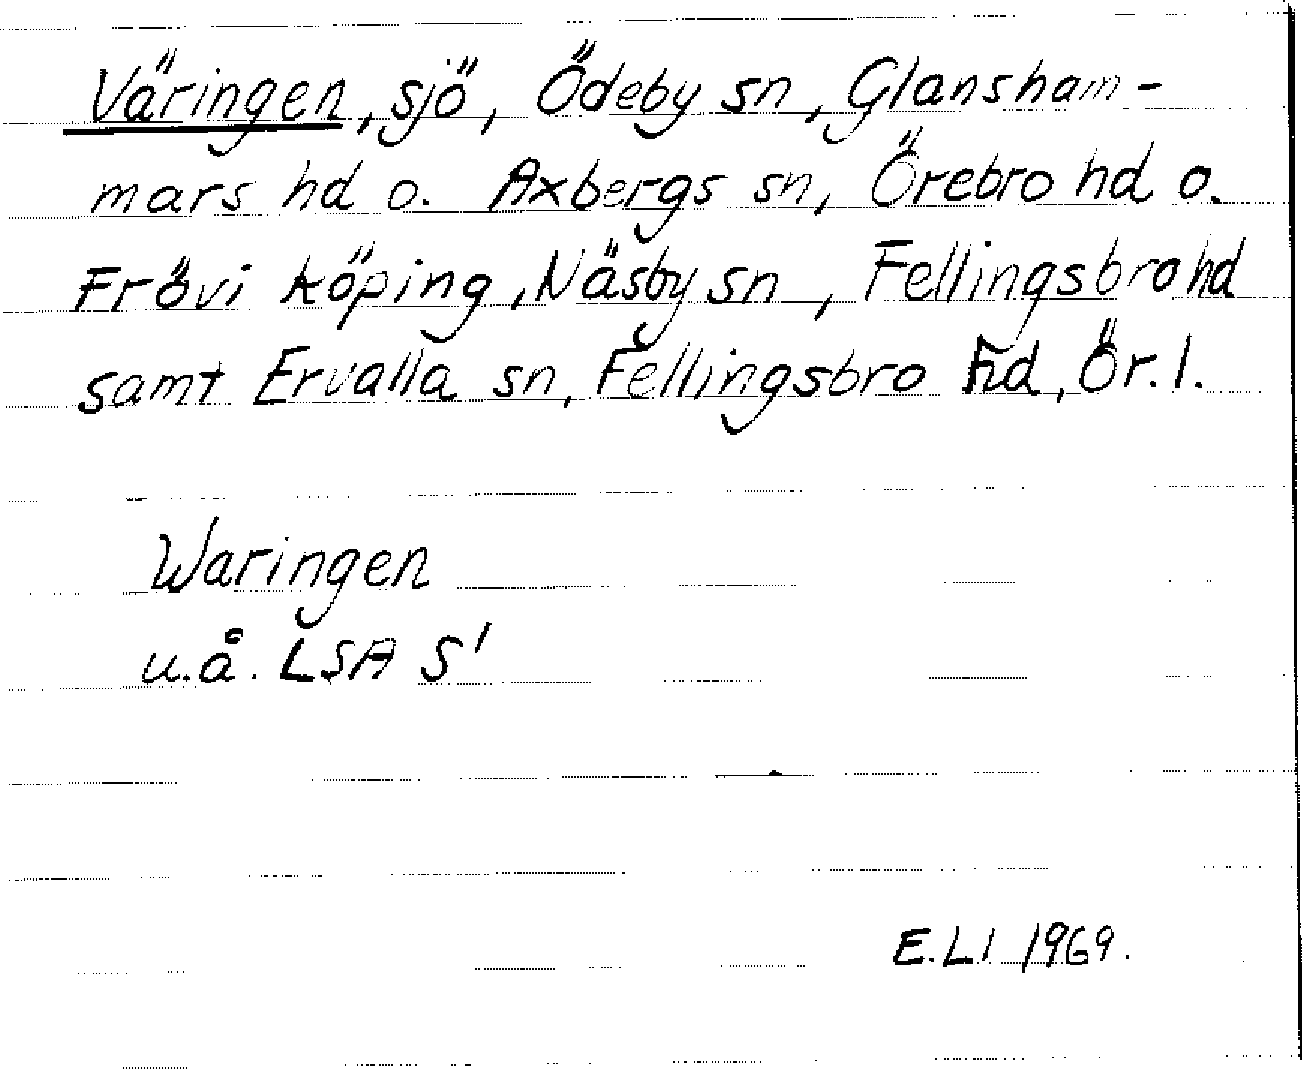 Väringen, sjö, Ödeby sn, Glansham-
mars hd o. Axbergs sn, Örebro hd o.
Frövi köping, Näsby sn, Fellingsbro hd
samt Ervalla sn, Fellingsbro hd, Ör. l.
Waringen
u.å. LSA S'
E.Ll 1969.